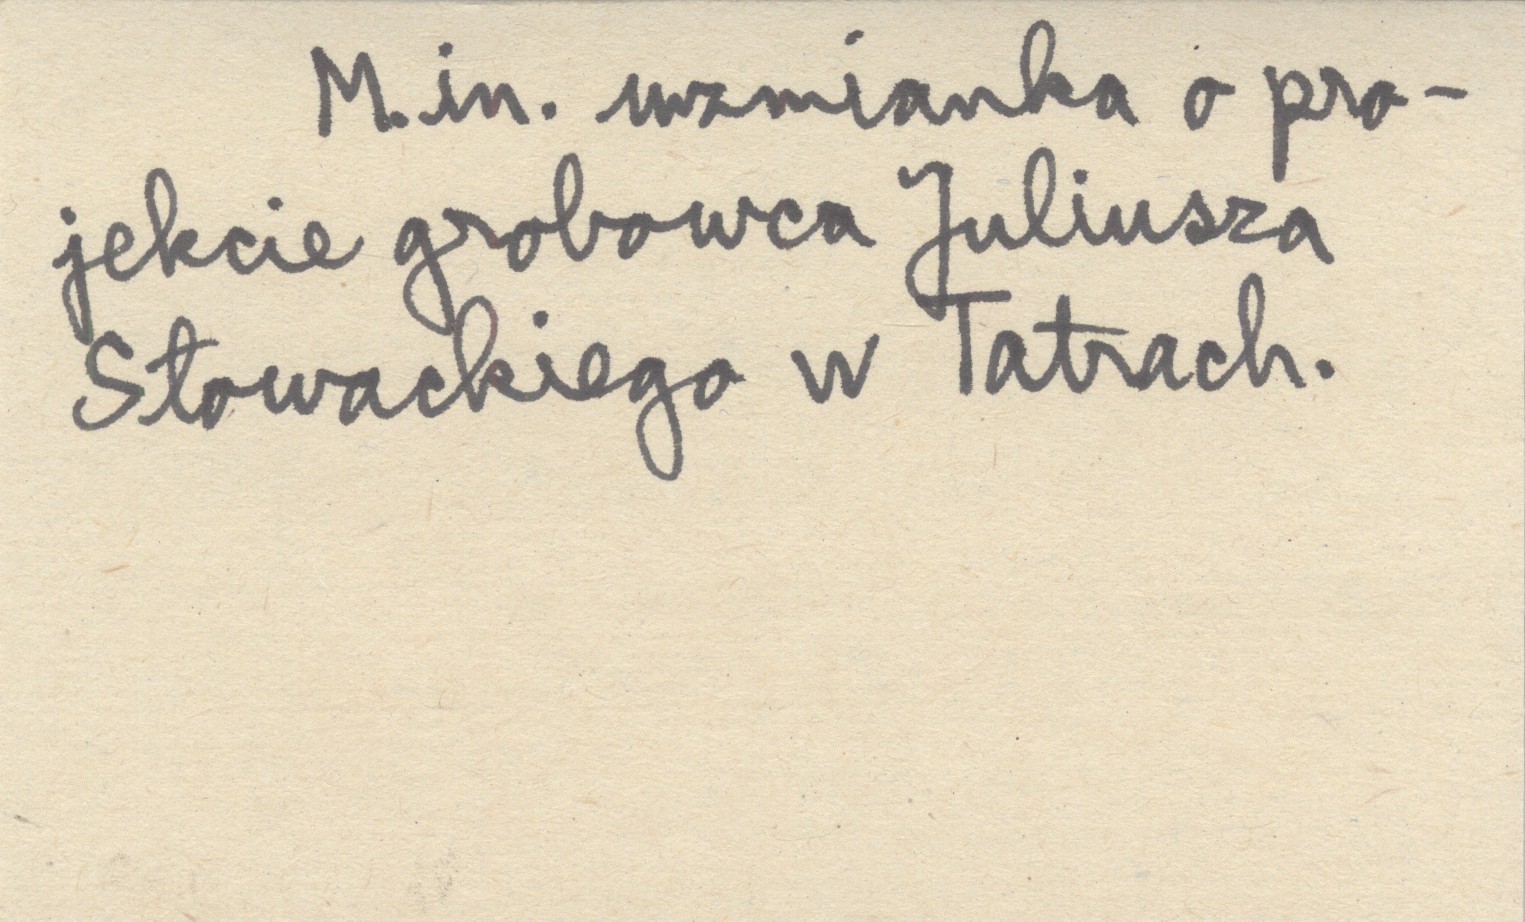 M.in. wzmianka o pro-
jekcie grobowca Juliusza
Słowackiego w Tatrach.